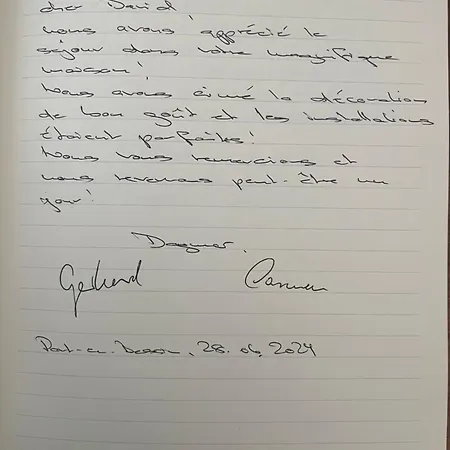 cher David,
nous avons apprécié le
séjour dans votre magnifique
maison!
Nous avons aimé la décoration
de bon goût et les installations
étaient parfaites!
Nous vous remercions et
nous revenons peut-être un
jour!
Dagmar,
Gerhard Carmen
Port-en-Bessin, 28.06.2024